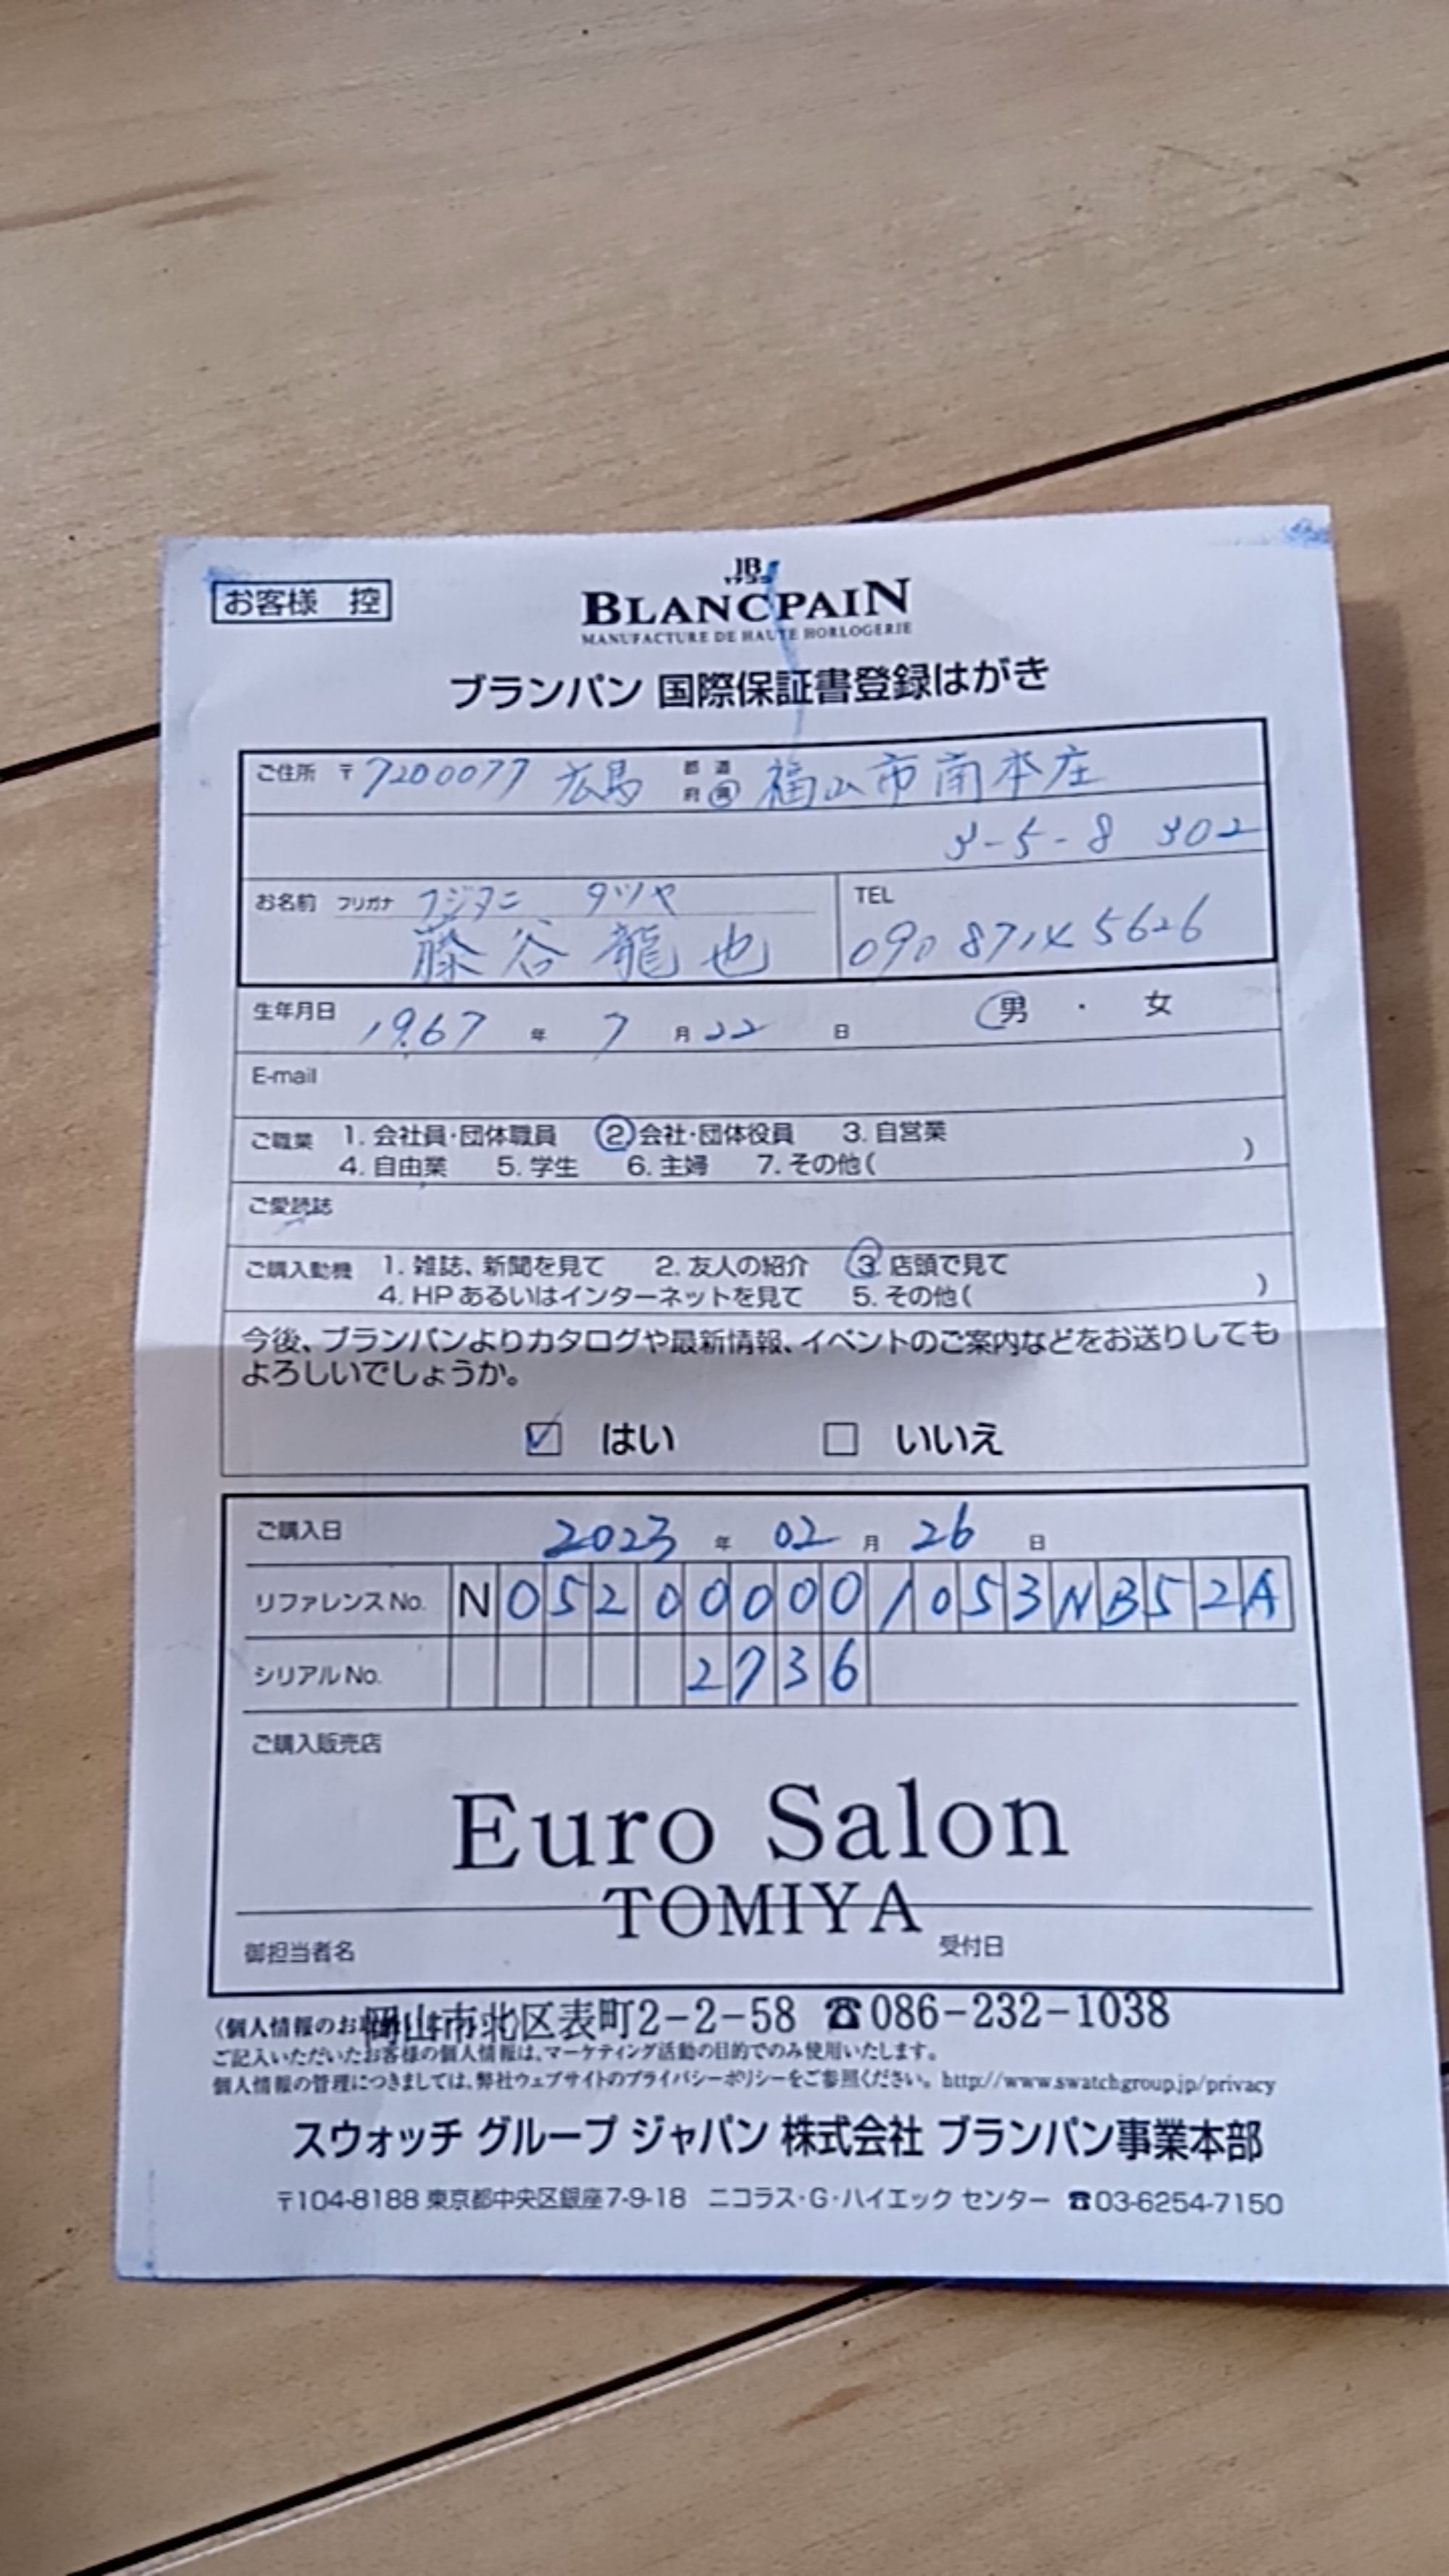 お客様 控
JB
1735
BLANCPAIN
MANUFACTURE DE HAUTE HORLOGERIE
ブランパン 国際保証書登録はがき
ご住所 〒7200077 広島 都道府県 福山市南本庄
3-5-8 302
お名前 フリガナ フジタニ タツヤ
藤谷龍也
TEL
090 8714 5626
生年月日 1967 年 7 月 22 日 男 ・ 女
E-mail
ご職業 1. 会社員・団体職員 2. 会社・団体役員 3. 自営業
4. 自由業 5. 学生 6. 主婦 7. その他( )
ご愛読誌
ご購入動機 1. 雑誌、新聞を見て 2. 友人の紹介 3. 店頭で見て
4. HPあるいはインターネットを見て 5. その他( )
今後、ブランパンよりカタログや最新情報、イベントのご案内などをお送りしても
よろしいでしょうか。
☑ はい □ いいえ
ご購入日 2023 年 02 月 26 日
リファレンスNo. N05200000/053NB52A
シリアルNo. 2736
ご購入販売店
Euro Salon
TOMIYA
御担当者名 受付日
岡山市北区表町2-2-58 ☎086-232-1038
〈個人情報のお
ご記入いただいたお客様の個人情報は、マーケティング活動の目的でのみ使用いたします。
個人情報の管理につきましては、弊社ウェブサイトのプライバシーポリシーをご参照ください。http://www.swatchgroup.jp/privacy
スウォッチ グループ ジャパン 株式会社 ブランパン事業本部
〒104-8188 東京都中央区銀座7-9-18 ニコラス・G・ハイエック センター ☎03-6254-7150